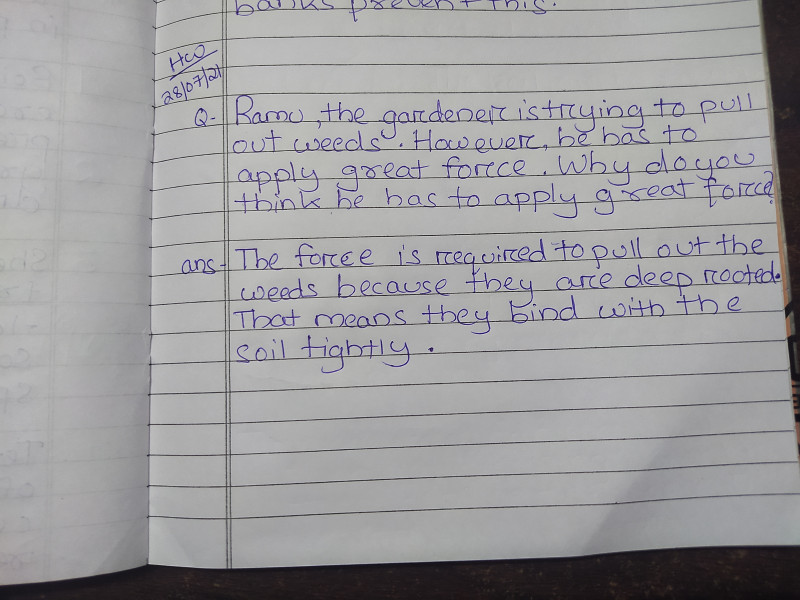 banks prevent this.
HCW
28/07/21
Q- Ramu, the gardener is trying to pull
out weeds. However, he has to
apply great force. Why do you
think he has to apply great force?
ans- The force is required to pull out the
weeds because they are deep rooted.
That means they bind with the
soil tightly.